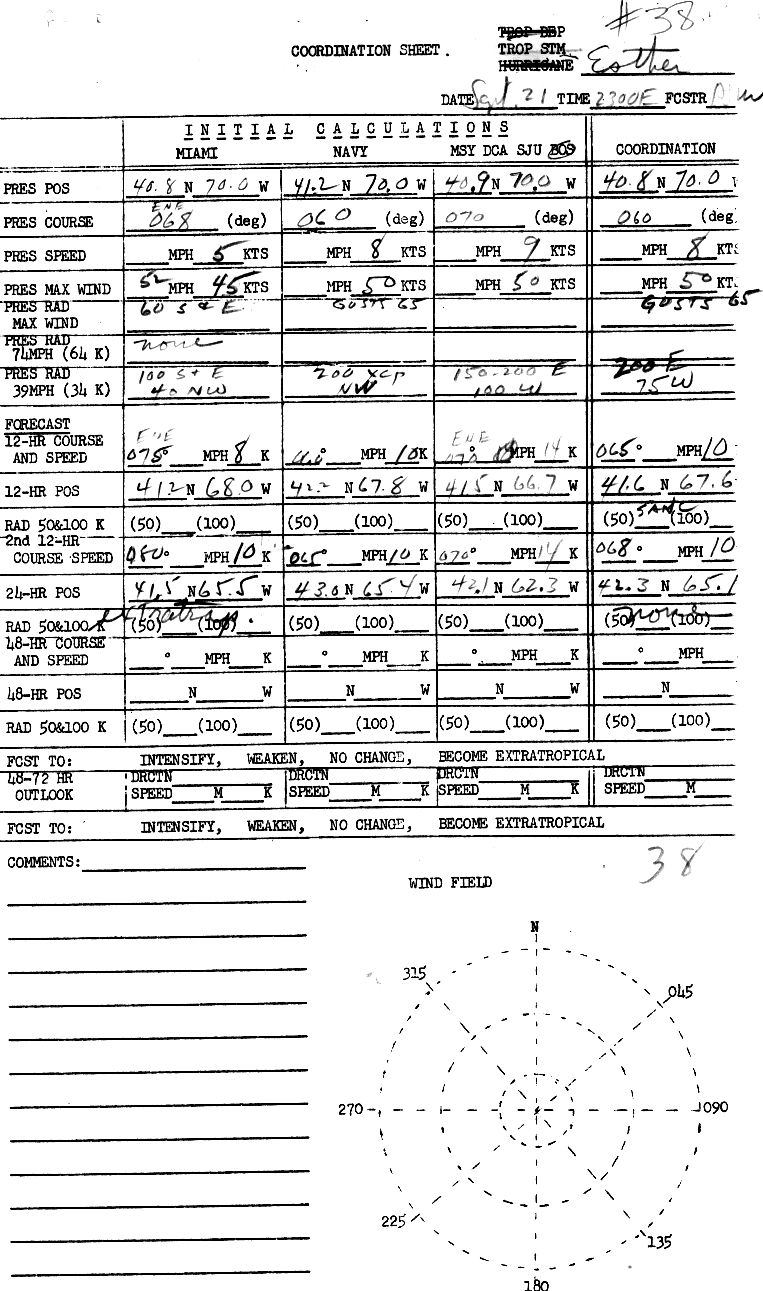 #38
TROP DEP
COORDINATION SHEET. TROP STM
HURRICANE Esther
DATE Sept. 21 TIME 2300E FCSTR
INITIAL CALCULATIONS
MIAMI NAVY MSY DCA SJU BOS COORDINATION
PRES POS 40.8 N 70.0 W 41.2 N 70.0 W 40.9 N 70.0 W 40.8 N 70.0
ENE
PRES COURSE 068 (deg) 060 (deg) 070 (deg) 060 (deg
PRES SPEED MPH 5 KTS MPH 8 KTS MPH 9 KTS MPH 8 KTS
PRES MAX WIND 52 MPH 45 KTS MPH 50 KTS MPH 50 KTS MPH 50 KT
PRES RAD 60 S & E GUSTS 65 GUSTS 65
MAX WIND
PRES RAD none
74MPH (64 K)
PRES RAD 100 S + E 200 xcp 150-200 E 200 E
39MPH (34 K) 40 NW NW 100 W 75 W
FORECAST
12-HR COURSE ENE ENE
AND SPEED 075° MPH 8 K ° MPH 10 K ° MPH 14 K 065° MPH 10
12-HR POS 41.2 N 68.0 W 42.2 N 67.8 W 41.5 N 66.7 W 41.6 N 67.6
RAD 50&100 K (50) (100) (50) (100) (50) (100) (50) SAME (100)
2nd 12-HR
COURSE SPEED 080° MPH 10 K 065° MPH 10 K 070° MPH 14 K 068° MPH 10
24-HR POS 41.5 N 65.5 W 43.0 N 65.4 W 42.1 N 62.3 W 42.3 N 65.1
RAD 50&100 K extratrop. (50) (100) (50) (100) (50) (100) (50) none (100)
48-HR COURSE
AND SPEED ° MPH K ° MPH K ° MPH K ° MPH
48-HR POS N W N W N W N
RAD 50&100 K (50) (100) (50) (100) (50) (100) (50) (100)
FCST TO: INTENSIFY, WEAKEN, NO CHANGE, BECOME EXTRATROPICAL
48-72 HR DRCTN DRCTN DRCTN DRCTN
OUTLOOK SPEED M K SPEED M K SPEED M K SPEED M
FCST TO: INTENSIFY, WEAKEN, NO CHANGE, BECOME EXTRATROPICAL
COMMENTS: 38
WIND FIELD
N
315 045
270 090
225 135
180